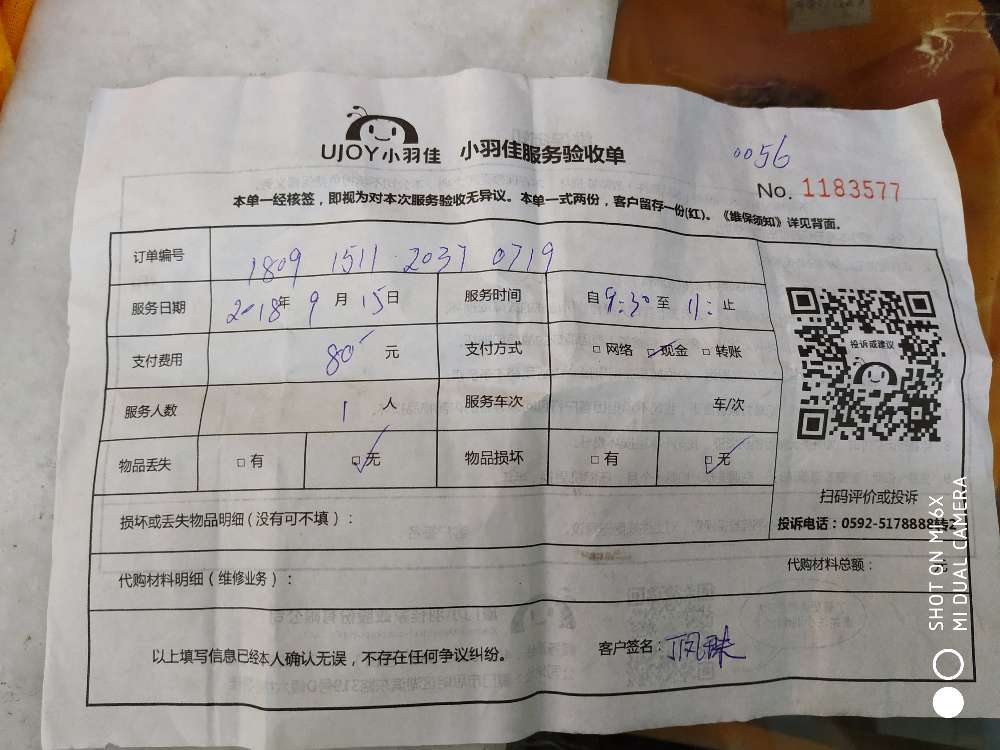 UJOY小羽佳 小羽佳服务验收单
0056
No. 1183577
本单一经核签，即视为对本次服务验收无异议。本单一式两份，客户留存一份(红)。《维保须知》详见背面。
订单编号 1809 1511 2037 0719
服务日期 2018年 9 月 15日 服务时间 自9:30至 11: 止
支付费用 80 元 支付方式 □网络 ☑现金 □转账
投诉或建议
服务人数 1 人 服务车次 车/次
物品丢失 □有 ☑无 物品损坏 □有 ☑无
扫码评价或投诉
损坏或丢失物品明细(没有可不填)：
投诉电话：0592-5178888转2
代购材料明细(维修业务)： 代购材料总额： 元
以上填写信息已经本人确认无误，不存在任何争议纠纷。 客户签名：丁凤珠
SHOT ON MI 6X
MI DUAL CAMERA